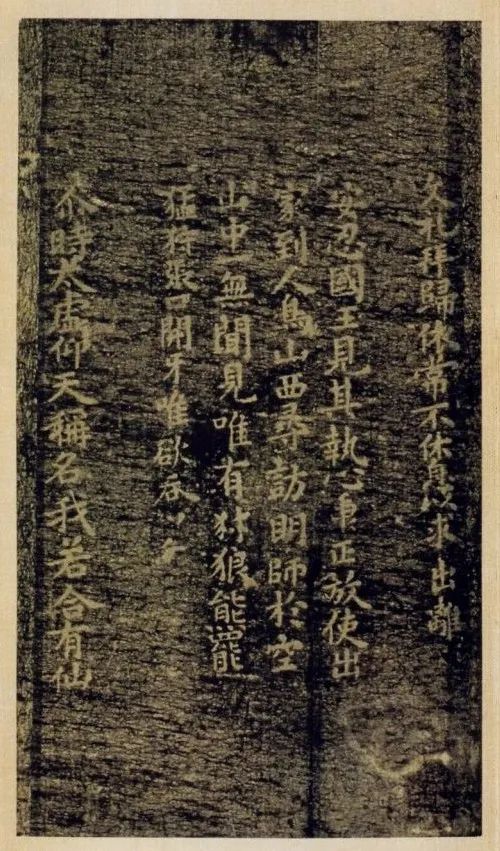 文礼拜歸依常不休息以求出離
安忍國王見其執心貞正放使出
家到人鳥山西尋訪明師於空
山中一無聞見唯有犲狼能羆
猛狩張口開牙唯欲吞
尒時太虛仰天稱名我若合有仙